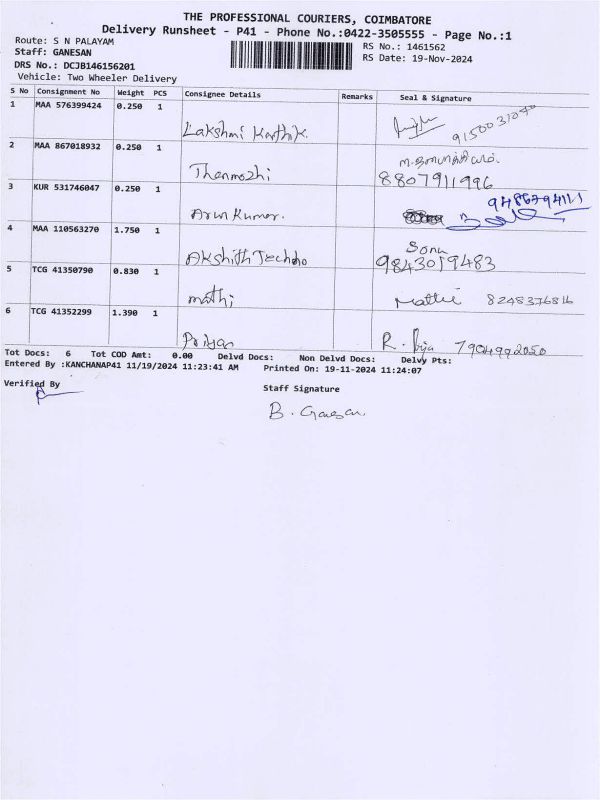 THE PROFESSIONAL COURIERS, COIMBATORE
Delivery Runsheet - P41 - Phone No.:0422-3505555 - Page No.:1
Route: S N PALAYAM
RS No.: 1461562
Staff: GANESAN
RS Date: 19-Nov-2024
DRS No.: DCJB146156201
Vehicle: Two Wheeler Delivery
S No Consignment No Weight PCS Consignee Details Remarks Seal & Signature
1 MAA 576399424 0.250 1
Lakshmi Karthik.
2 MAA 867018932 0.250 1
Thenmozhi 8807911996
3 KUR 531746047 0.250 1
Arun Kumar.
4 MAA 110563270 1.750 1 Sonu
Akshith Techno 9843019483
5 TCG 41350790 0.830 1
mathi 8248376816
6 TCG 41352299 1.390 1
Priyan R. 7904992050
Tot Docs: 6 Tot COD Amt: 0.00 Delvd Docs: Non Delvd Docs: Delvy Pts:
Entered By :KANCHANAP41 11/19/2024 11:23:41 AM Printed On: 19-11-2024 11:24:07
Verified By
Staff Signature
B. Ganesan